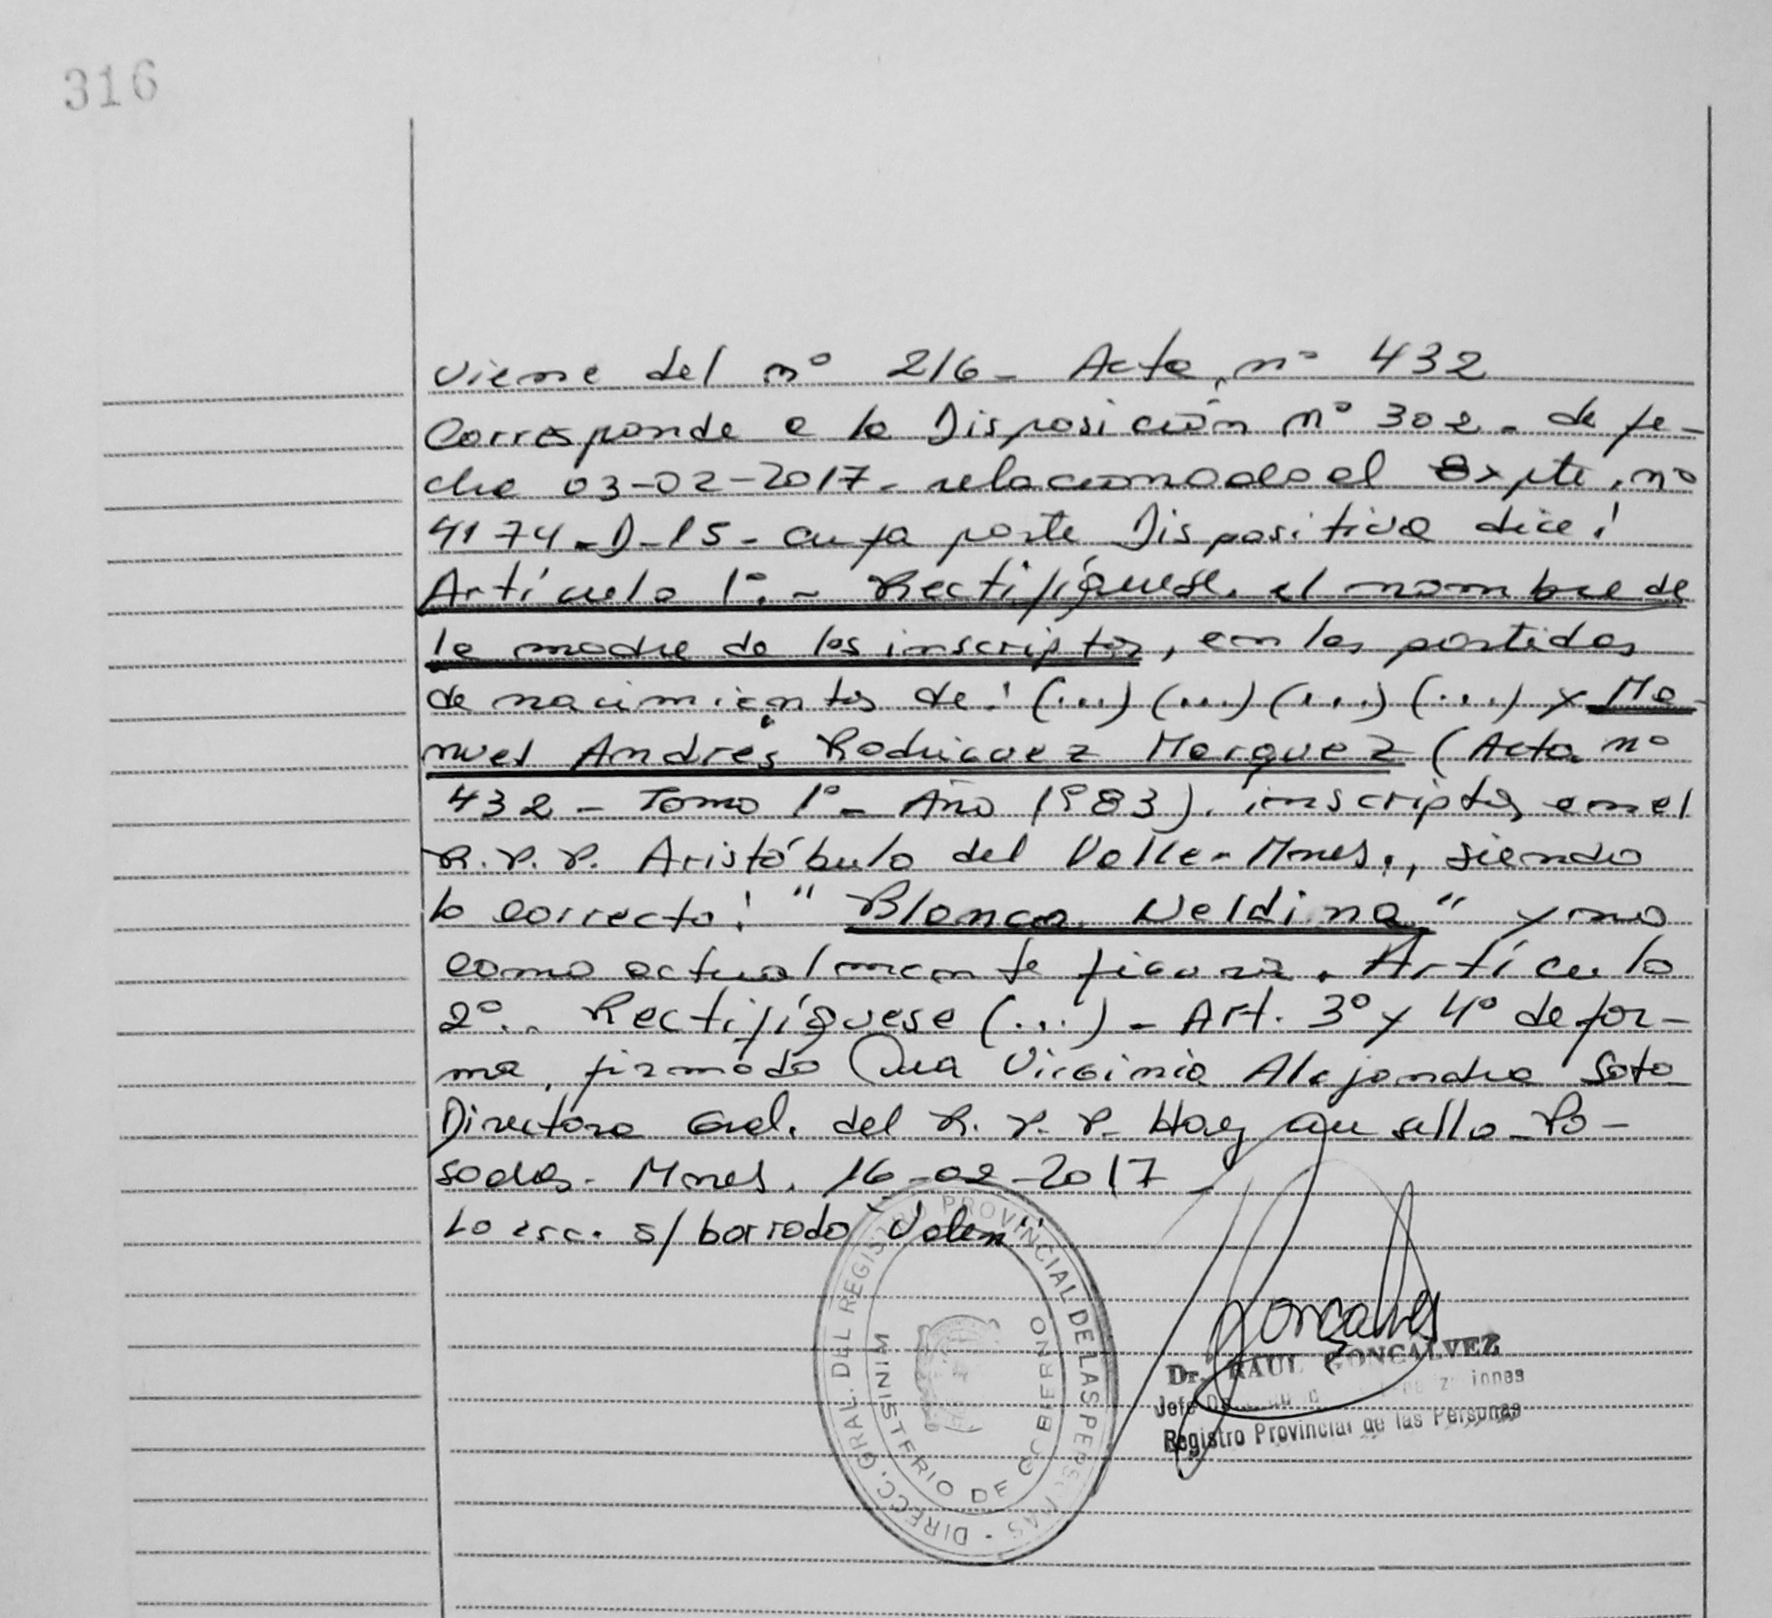 316
Viene del nº 216- Acta nº 432
Corresponde a la Disposición Nº 302- de fe-
cha 03-02-2017- relacionado al Expte. nº
4174-D-15- cuya parte Dispositiva dice:
Artículo 1º.- Rectifíquese el nombre de
la madre de los inscriptos, en las partidas
de nacimientos de: (...) (...) (...) (...) y Ma-
nuel Andrés Rodriguez Marquez (Acta nº
432 - Tomo 1º- Año 1983). inscriptos en el
R.P.P. Aristóbulo del Valle-Mnes., siendo
lo correcto: "Blanca Neldina" y no
como actualmente figura. Artículo
2º.. Rectifíquese (...) - Art. 3º y 4º de for-
ma, firmado Dra Virginia Alejandra Soto
Directora Gral. del R.P.P- Hay un sello-Po-
sadas- Mnes. 16-02-2017-
Lo esc. s/ borrado "Valen"
DIRECC. GRAL. DEL REGISTRO PROVINCIAL DE LAS PERSONAS -
MINISTERIO DE GOBIERNO
Goncalves
Dr. RAUL GONCALVEZ
Jefe
Registro Provincial de las Personas